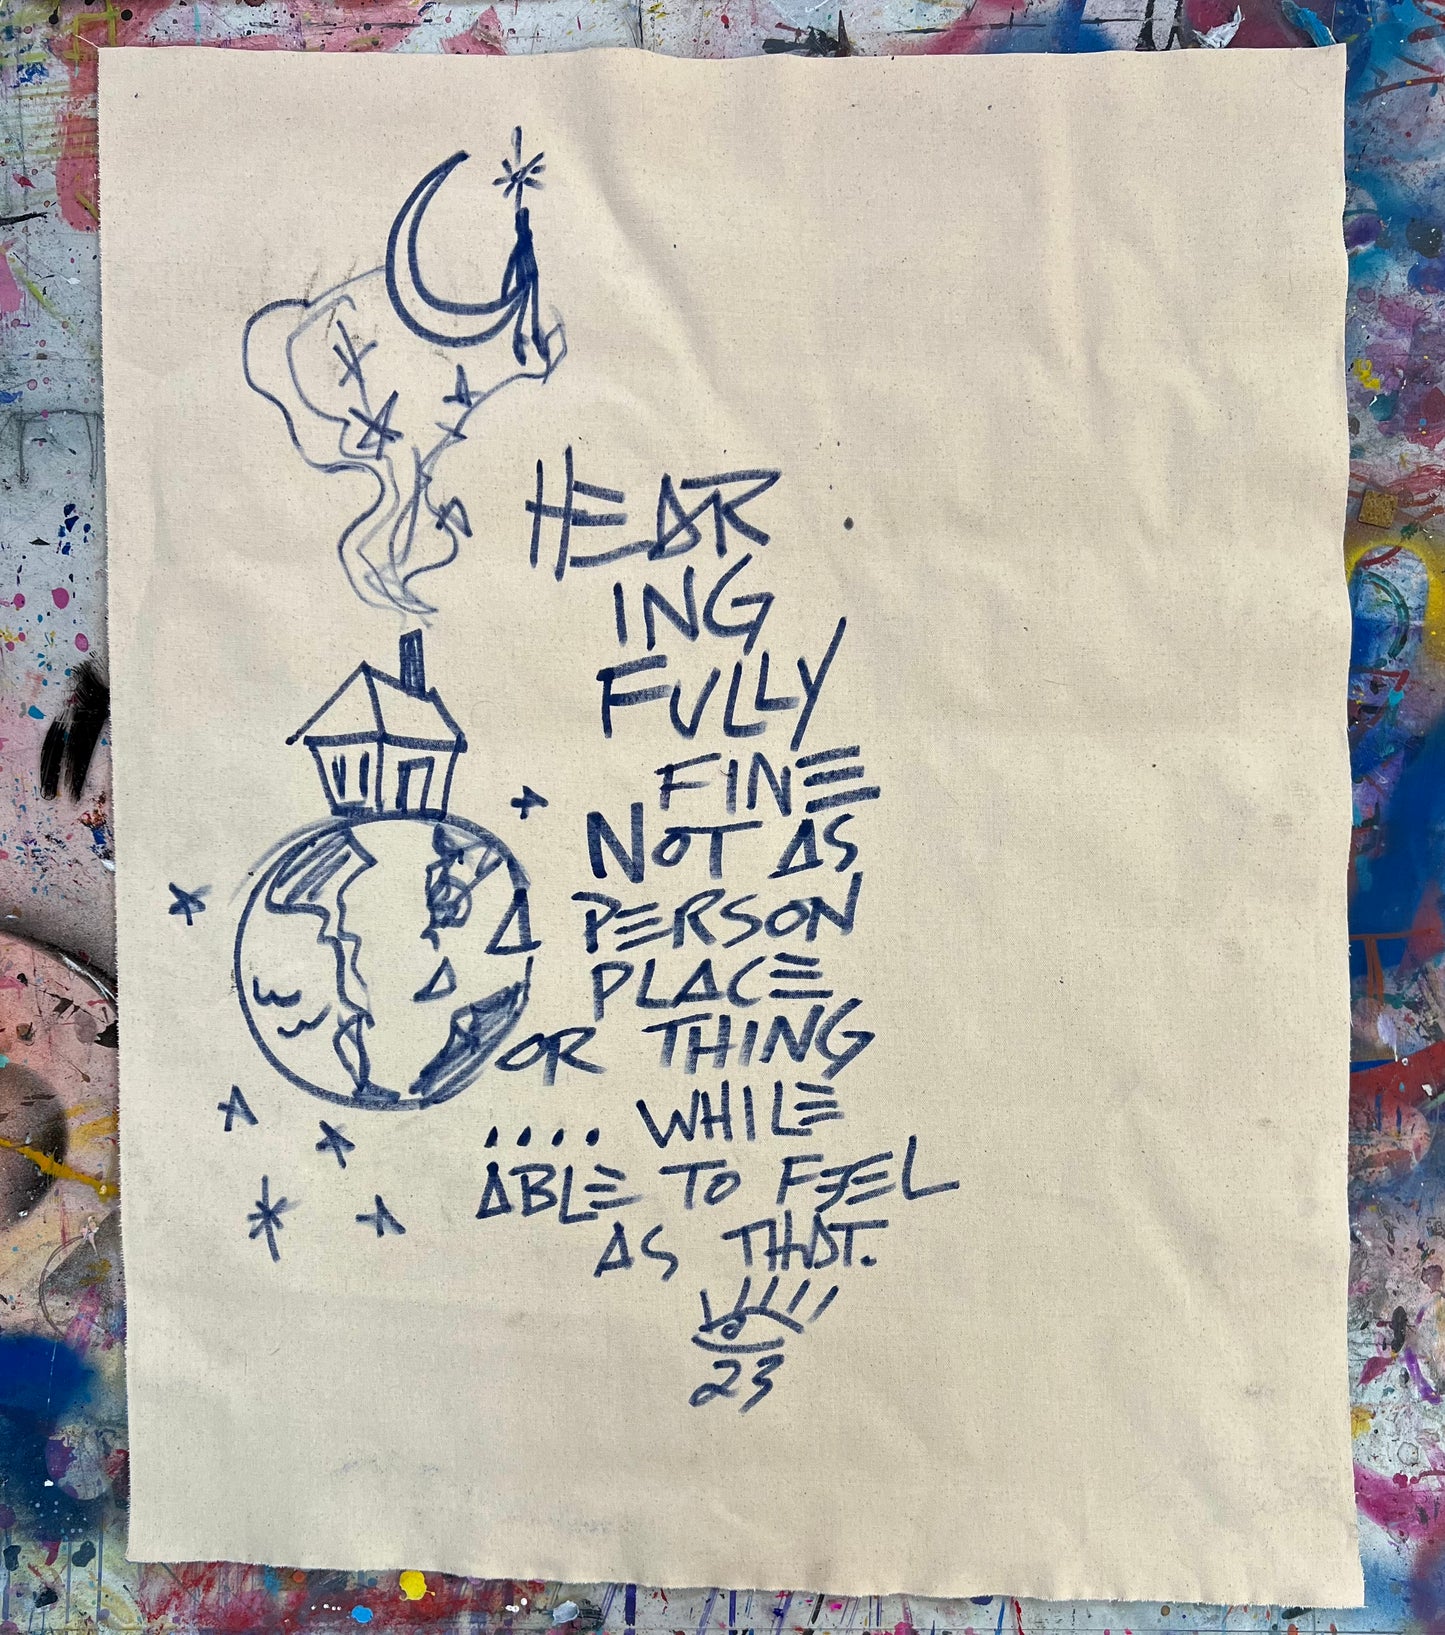 HEAR
ING
FULLY
FINE
NOT AS
PERSON
PLACE
OR THING
.... WHILE
ABLE TO FEEL
AS THAT.
23